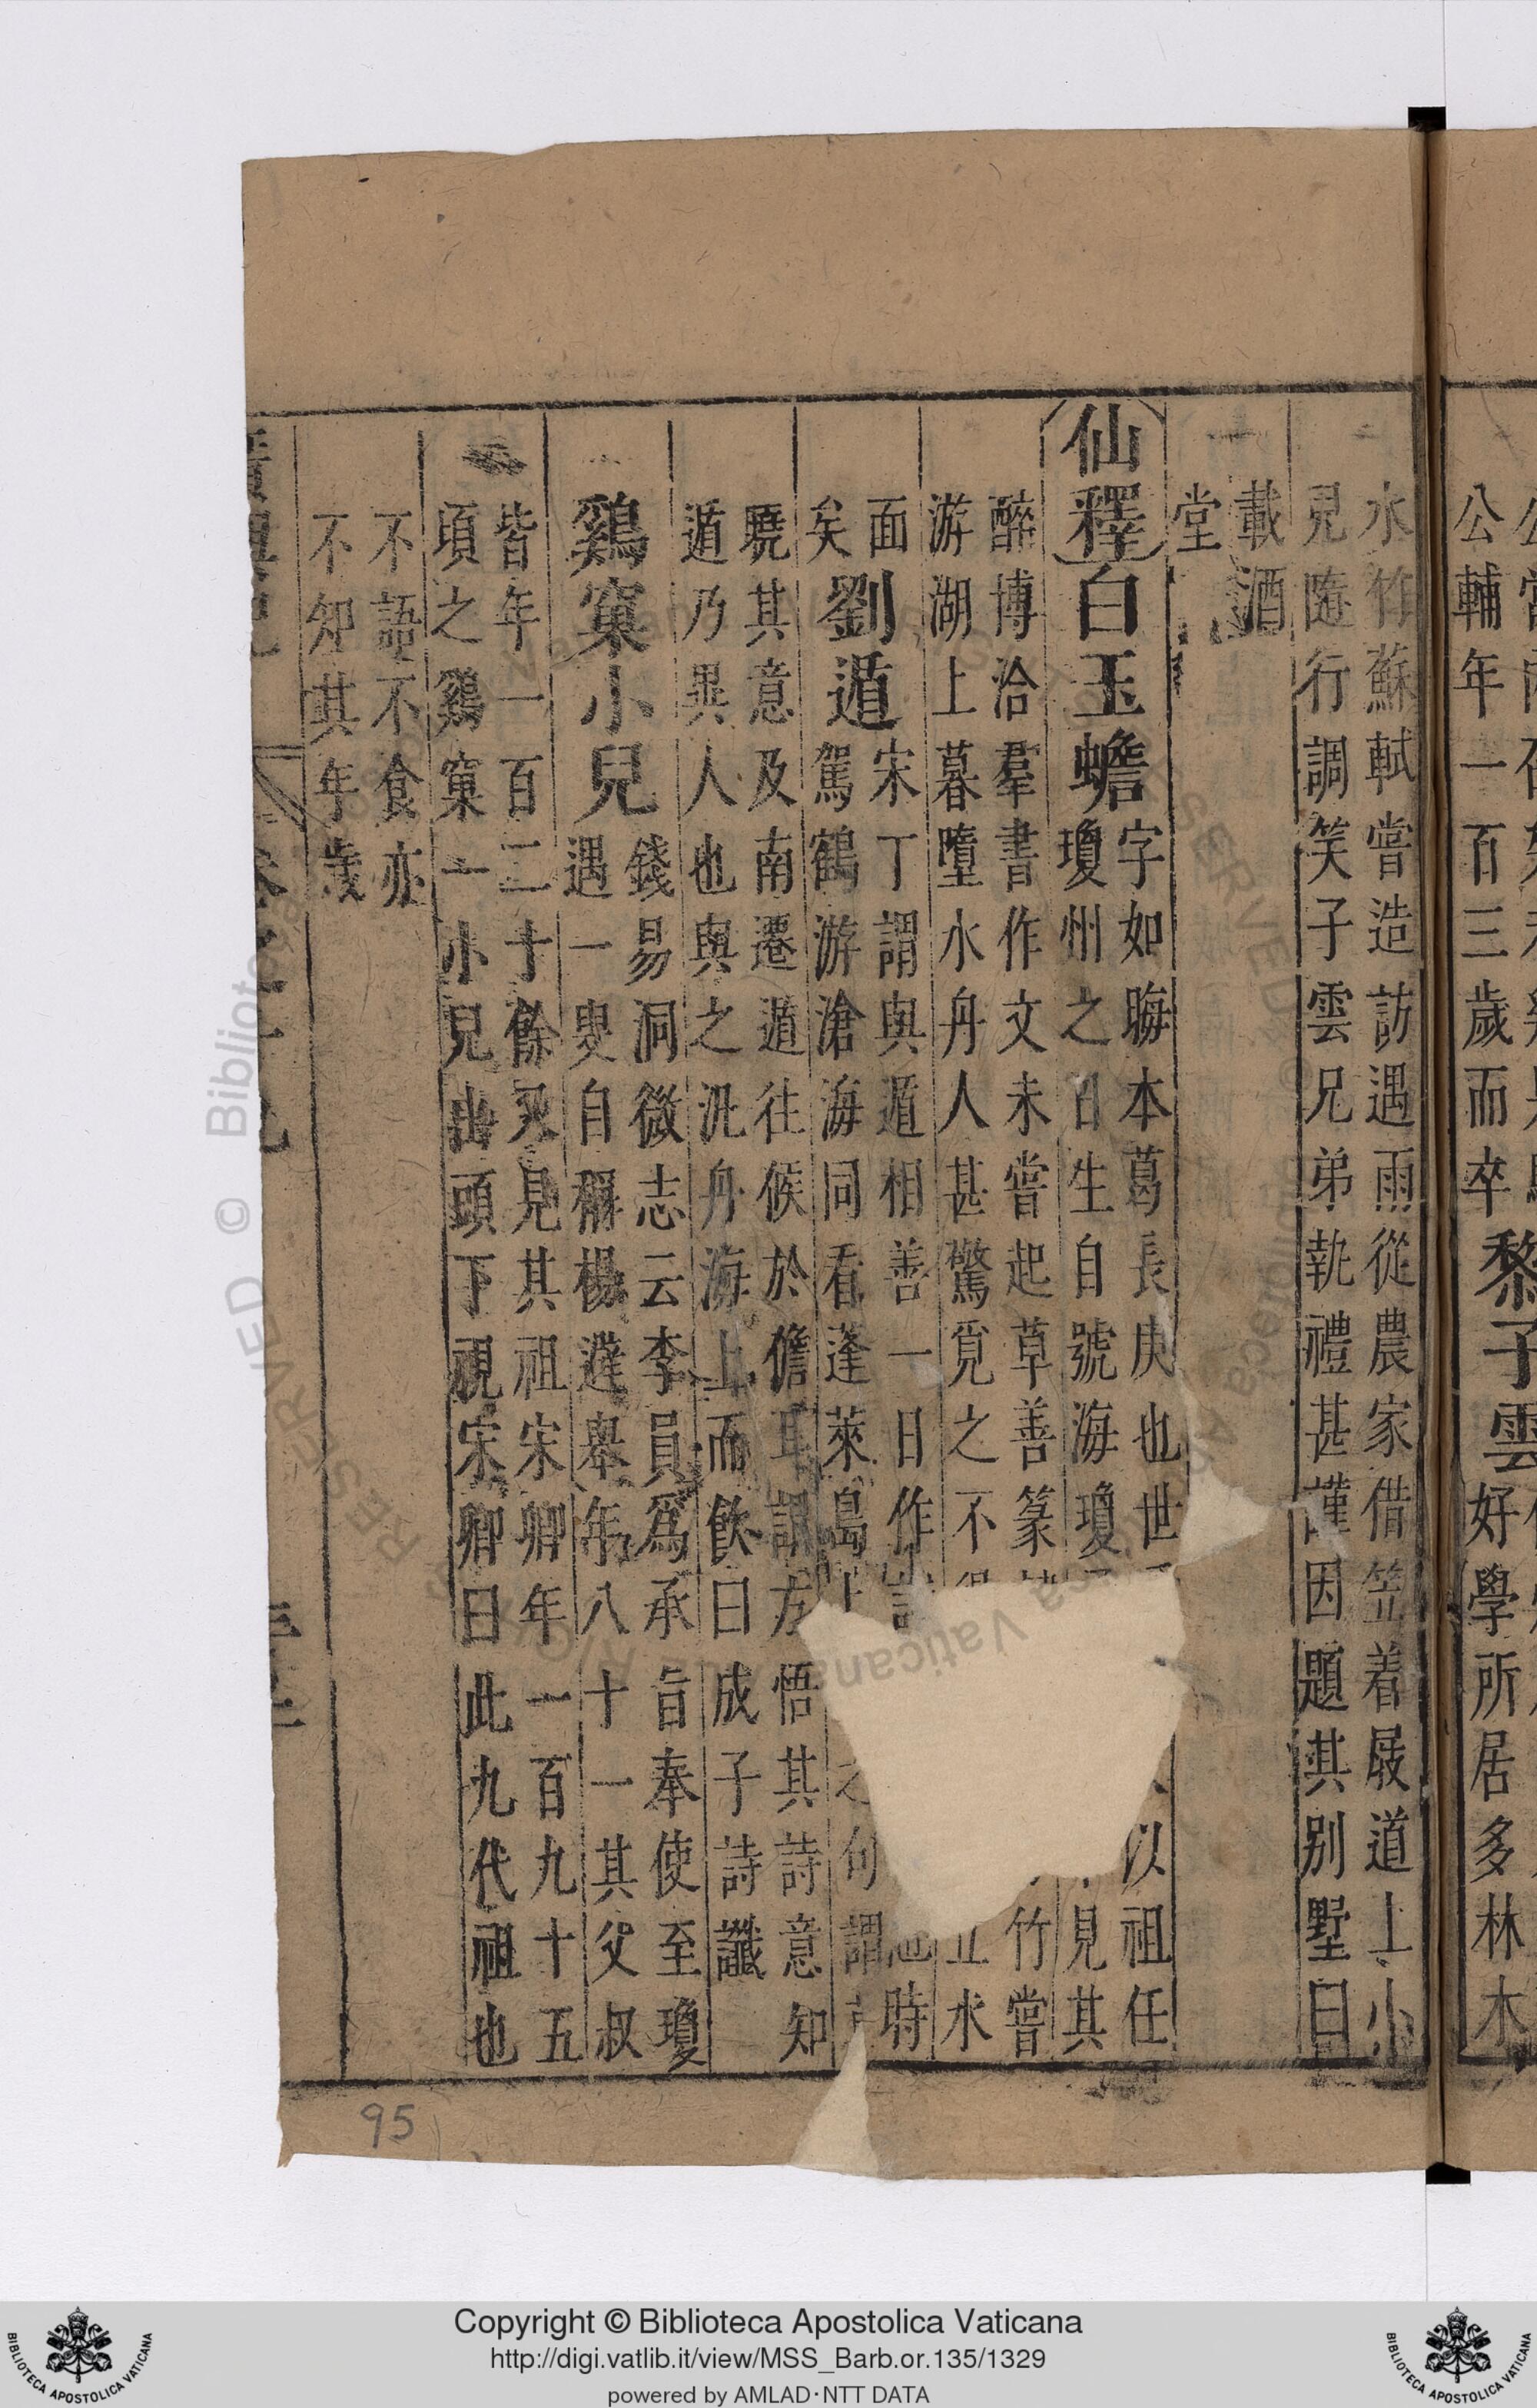 公輔年一百三歲而卒黎子雲好學所居多林木
水竹蘇軾嘗造訪遇雨從農家借笠着屐道上小
兒隨行調笑子雲兄弟執禮甚謹因題其别墅曰
載酒
堂
仙釋白玉蟾
字如晦本葛長庚也世以祖任
瓊州之日生自號海瓊見其
醉博洽羣書作文未嘗起草善篆竹嘗
游湖上暮墮水舟人甚驚覓之不立水
面
矣
劉遁
宋丁謂與遁相善一日作詩時
駕鶴游滄海同看蓬萊島上之句謂
曉其意及南遷遁往候於儋耳謂方悟其詩意知
遁乃異人也與之汎舟海上而飲曰成子詩讖
鷄窠小兒
錢易洞微志云李員爲承旨奉使至瓊
遇一叟自稱楊遐舉年八十一其父叔
皆年一百二十餘又見其祖宋卿年一百九十五
頃之鷄窠一小兒出頭下視宋卿曰此九代祖也
不語不食亦
不知其年歲
95
Copyright © Biblioteca Apostolica Vaticana
http://digi.vatlib.it/view/MSS_Barb.or.135/1329
powered by AMLAD·NTT DATA
BIBLIOTECA APOSTOLICA VATICANA
BIBLIOTECA APOSTOLICA VATICANA